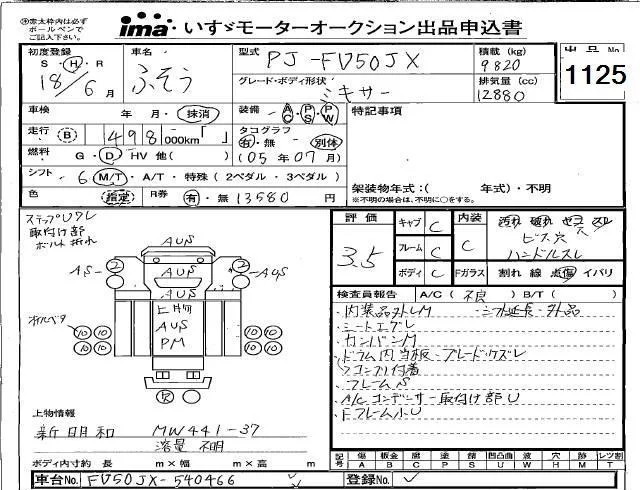 ※太枠内は必ず
ボールペンで
ご記入下さい。
ima いすゞモーターオークション出品申込書
初度登録
S・H・R
18/6月
車名
ふそう
型式
PJ-FV50JX
グレード・ボディ形状
ミキサー
積載 (kg)
9820
排気量 (cc)
12880
出品No
1125
車検
年 月・抹消
装備
AC PS PW
特記事項
走行
B
498
000km「 」
タコグラフ
有・無 別体
(05年07月)
燃料
G・D・HV 他( )
シフト
6 M/T・A/T・特殊(2ペダル・3ペダル)
色
指定
R券
有・無 13580 円
架装物年式:( 年式)・不明
※架装物の場合は年式を記入、不明に○をする。
ステップUクレ
取付け部
ボルト折れ
AUS
2
2
AS
AUS
上物
AUS
PM
10 10 10 10
10 10 10 10
評価
3.5
キャブ C
フレーム C
ボディ C
内装
C
汚れ 破れ セコ スレ
ビス穴
ハンドルスレ
Fガラス
割れ 線 点傷 イバリ
検査員報告
A/C( 不良 ) B/T( )
・内装品外しM ・シフト延長・外品
・シートエグレ
・カンバンM
・ドラム内当板・ブレードクズレ
コンクリ付着
・フレームS
・A/Cコンデンサー取付け部U
・Fフレーム小U
上物情報
新明和 MW441-37
容量 不明
ボディ内寸約 長 m×幅 m×高 m
記号
傷 板金 腐 塗 錆 凹凸曲 波 穴 跡 レツ割
A B C P S U W H M T
車台No. FV50JX-540466
登録No.